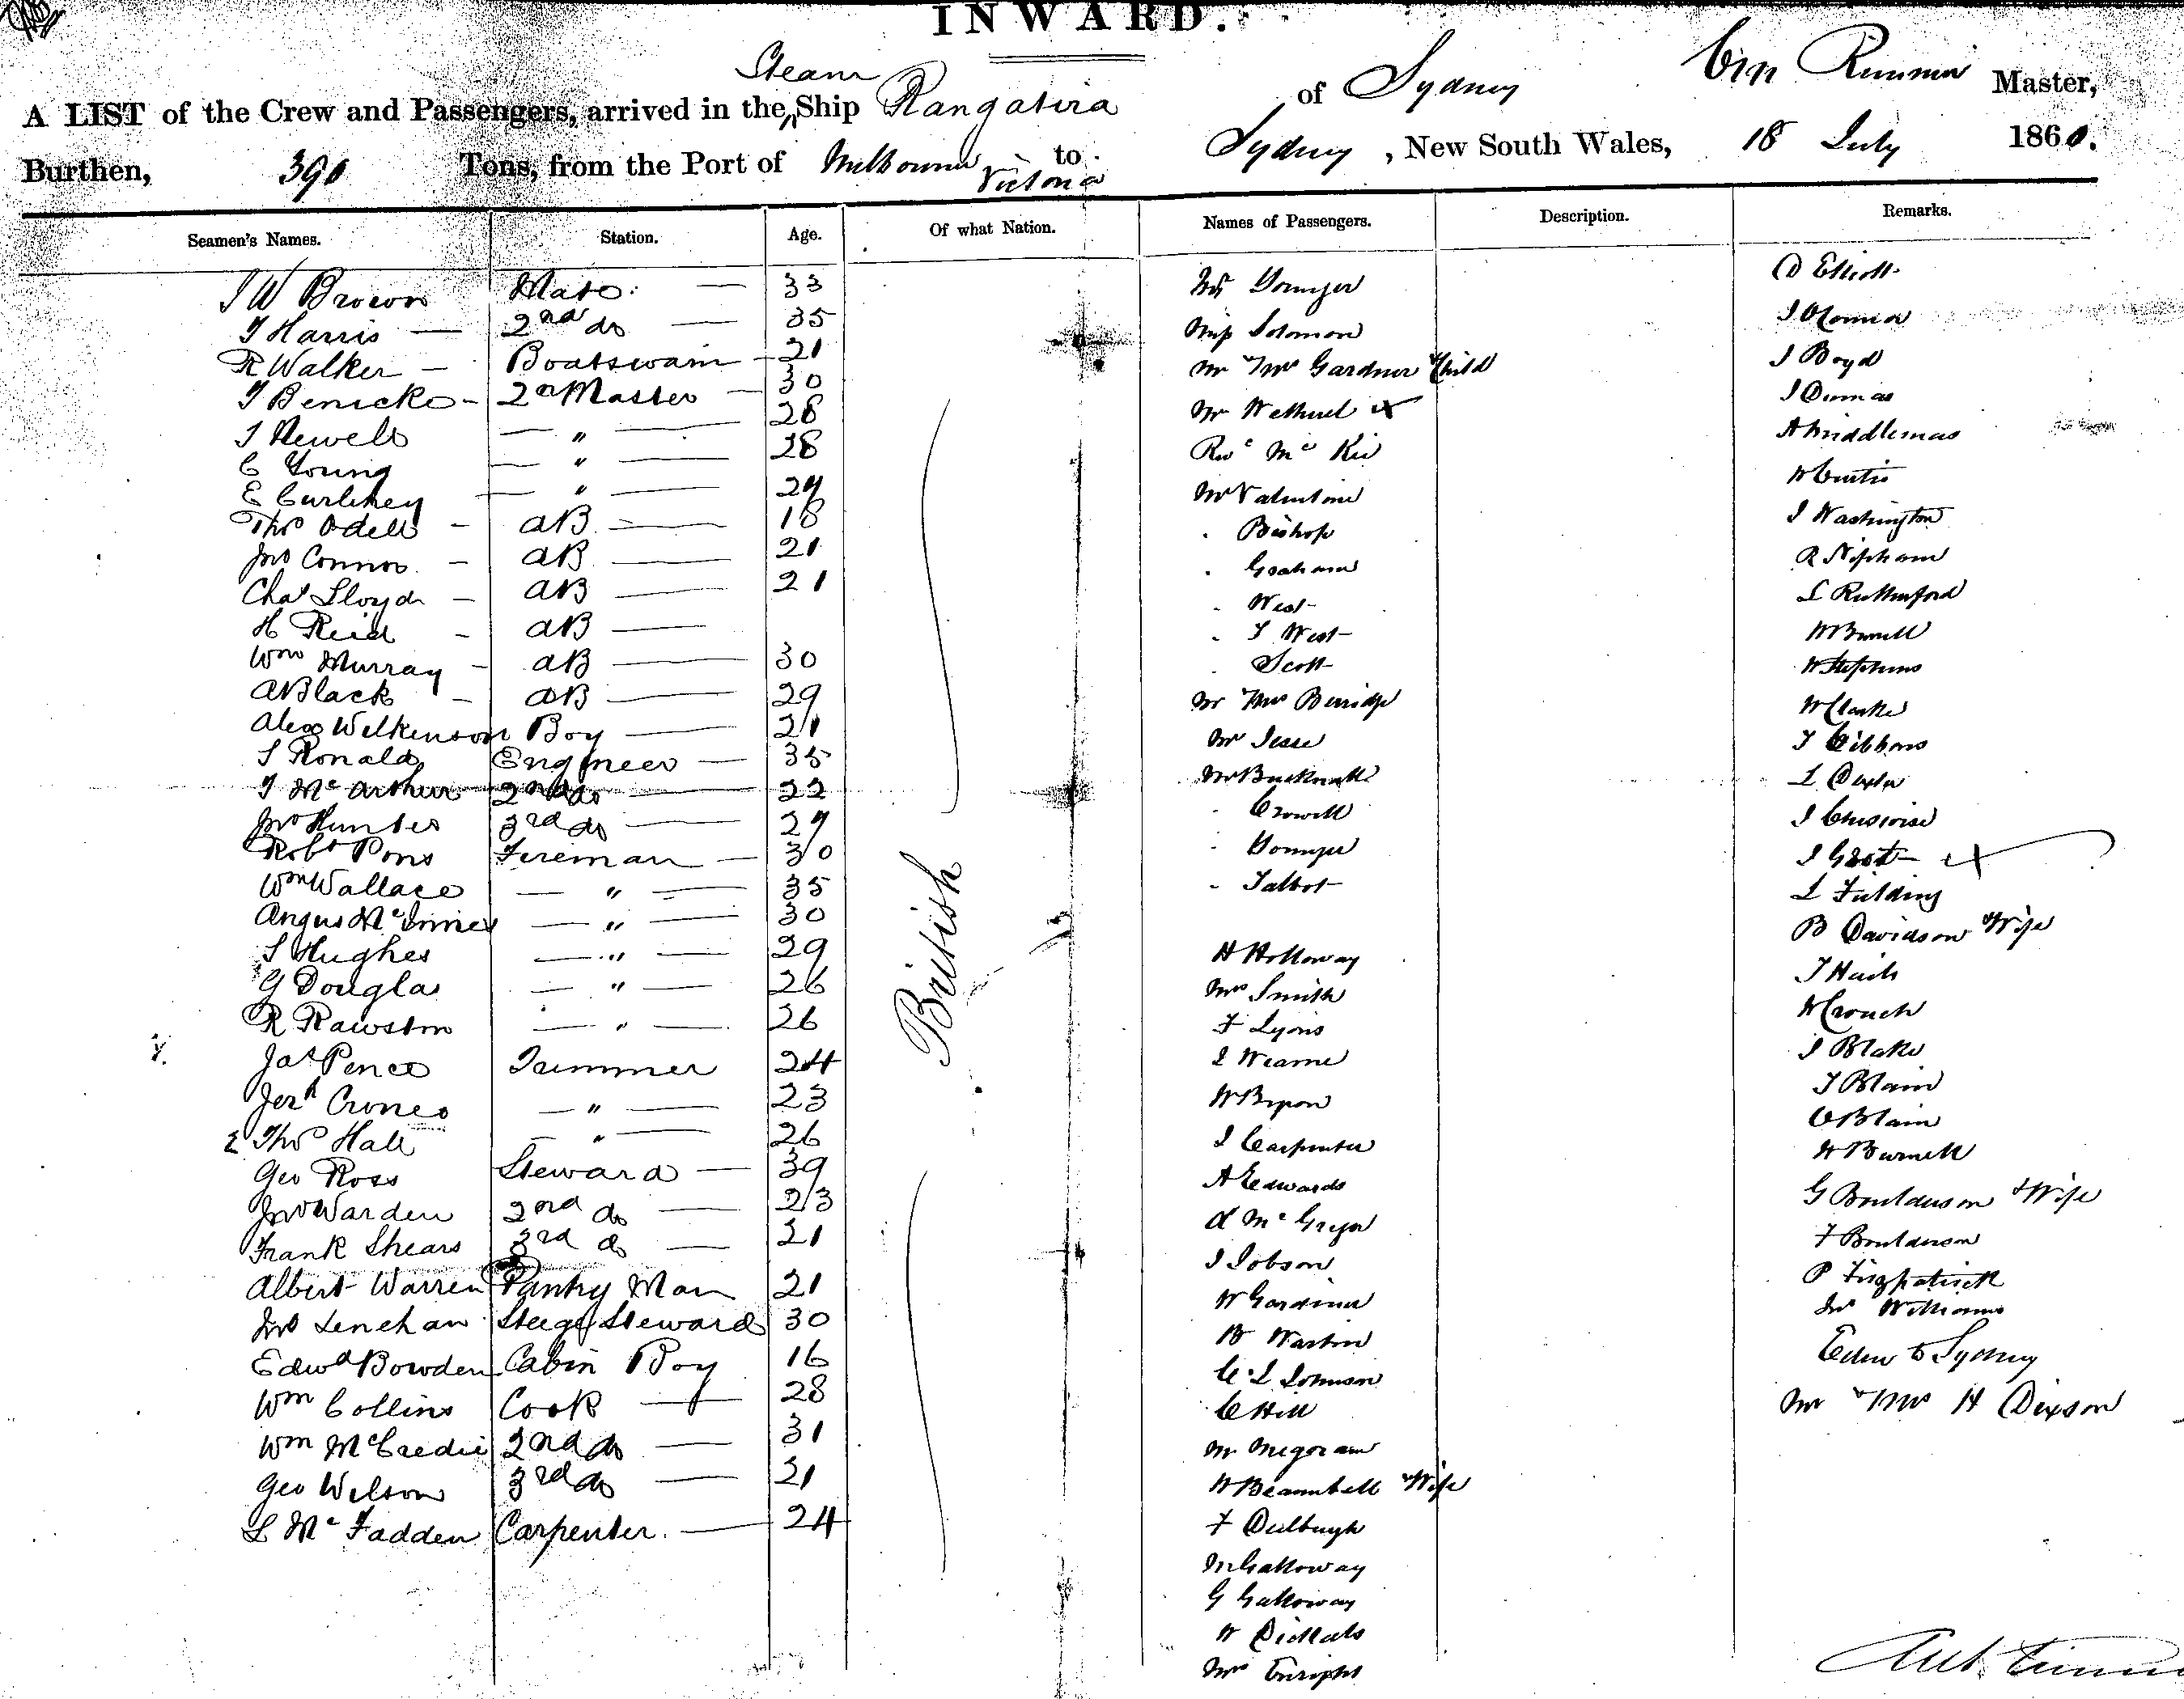 INWARD.
A LIST of the Crew and Passengers, arrived in the Steam Ship Rangatira of Sydney Master,
Burthen, 390 Tons, from the Port of Melbourne Victoria to Sydney, New South Wales, 18 July 1860.
Seamen's Names. Station. Age. Of what Nation. Names of Passengers. Description. Remarks.
J W Brown Mate 33
T Harris 2nd do 35
R Walker Boatswain 21
T Benicke 2r Master 30
J Newell " 28
C Young " 28
E Curlthey " 24
Thos Odell AB 18
Jno Connor AB 21
Chas Lloyd AB 21
H Reid AB
Wm Murray AB 30
A Black AB 29
Alex Wilkenson Boy 21
J Ronald Engineer 35
T McArthur 2nd do 22
Jno Hunter 3rd do 27
Robt Pons Fireman 30
Wm Wallace " 35
Angus McInnes " 30
J Hughes " 29
G Douglas " 26
R Rawston " 26
Jas Pence Trimmer 24
Jerh Crones " 23
Thos Hall " 26
Geo Ross Steward 39
Jno Warden 2nd do 23
Frank Shears 3rd do 21
Albert Warren Pantry Man 21
Jno Lenehan Steege Steward 30
Edwd Bowden Cabin Boy 16
Wm Collins Cook 28
Wm McCredie 2nd do 31
Geo Wilson 3rd do 21
L McFadden Carpenter 24
British
Mrs Younger
Miss Solomon
Mr & Mrs Gardner & Child
Mr Wetherel x
Revd Mc Kee
Mr Valentine
" Bishop
" Graham
" West
" T West
" Scott
Mr & Mrs Berridge
Mr Jesse
Mr Bucknall
" Crowell
" Younger
" Talbot
H Holloway
Mrs Smith
F Lyons
J Wearne
W Byron
J Carpenter
A Edwards
D McGregor
J Jobson
W Gardiner
B Wartin
C L Johnson
C Hill
Mr Megoram
W Brambell & Wife
F Dulbugh
M Galloway
G Galloway
W
Mrs Enright
D Elliott
J
J Boyd
J Dumas
A Middlemas
W Curtis
J Washington
R Nipham
L Rutherford
W Burrell
W Stephens
W Clarke
T Gibbons
L Dexter
J
J Grot x
L Fielding
B Davidson & Wife
T Huish
H Crouch
J Blake
T Blain
O Blain
H Burnell
G Boulderson & Wife
F Boulderson
P Fitzpatrick
Jno Williams
Eden to Sydney
Mr & Mrs H Dixson